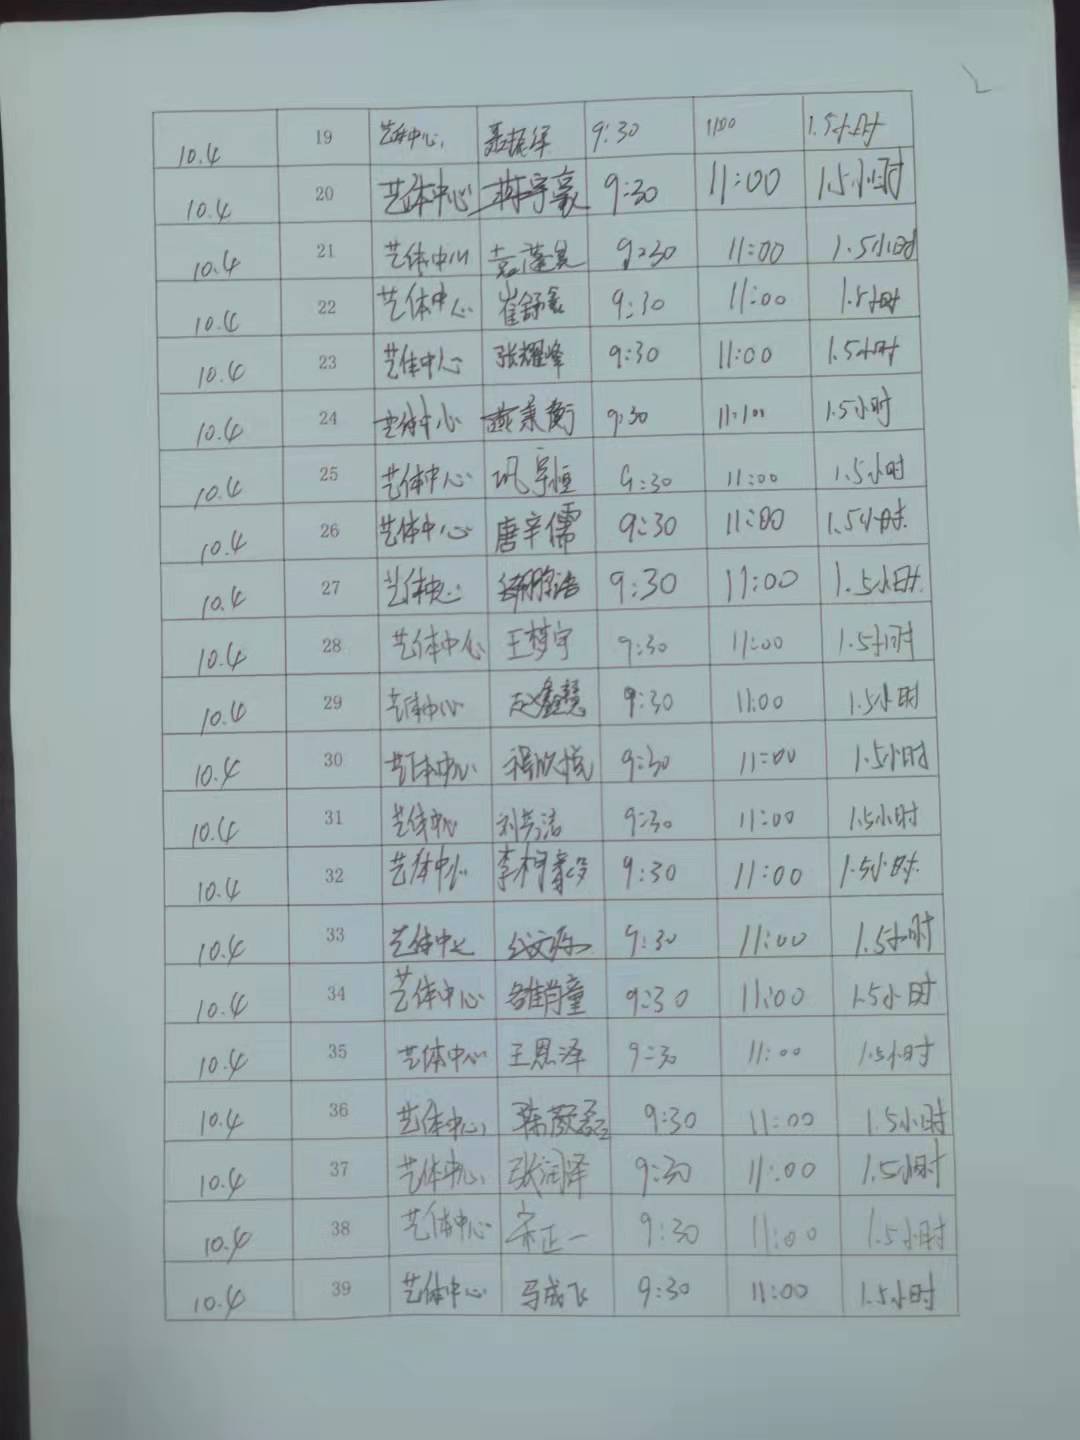 10.4 19 艺体中心 聂振泽 9:30 11:00 1.5小时
10.4 20 艺体中心 韩宇豪 9:30 11:00 1.5小时
10.4 21 艺体中心 袁 9:30 11:00 1.5小时
10.4 22 艺体中心 崔舒 9:30 11:00 1.5小时
10.4 23 艺体中心 张耀峰 9:30 11:00 1.5小时
10.4 24 艺体中心 燕秉衡 9:30 11:00 1.5小时
10.4 25 艺体中心 巩宇恒 9:30 11:00 1.5小时
10.4 26 艺体中心 唐辛儒 9:30 11:00 1.5小时
10.4 27 艺体中心 9:30 11:00 1.5小时
10.4 28 艺体中心 王梦宇 9:30 11:00 1.5小时
10.4 29 艺体中心 赵鑫慧 9:30 11:00 1.5小时
10.4 30 艺体中心 欣悦 9:30 11:00 1.5小时
10.4 31 艺体中心 刘芳洁 9:30 11:00 1.5小时
10.4 32 艺体中心 李柯毅 9:30 11:00 1.5小时
10.4 33 艺体中心 9:30 11:00 1.5小时
10.4 34 艺体中心 肖童 9:30 11:00 1.5小时
10.4 35 艺体中心 王恩泽 9:30 11:00 1.5小时
10.4 36 艺体中心 陈 9:30 11:00 1.5小时
10.4 37 艺体中心 张润泽 9:30 11:00 1.5小时
10.4 38 艺体中心 宋正一 9:30 11:00 1.5小时
10.4 39 艺体中心 马成飞 9:30 11:00 1.5小时